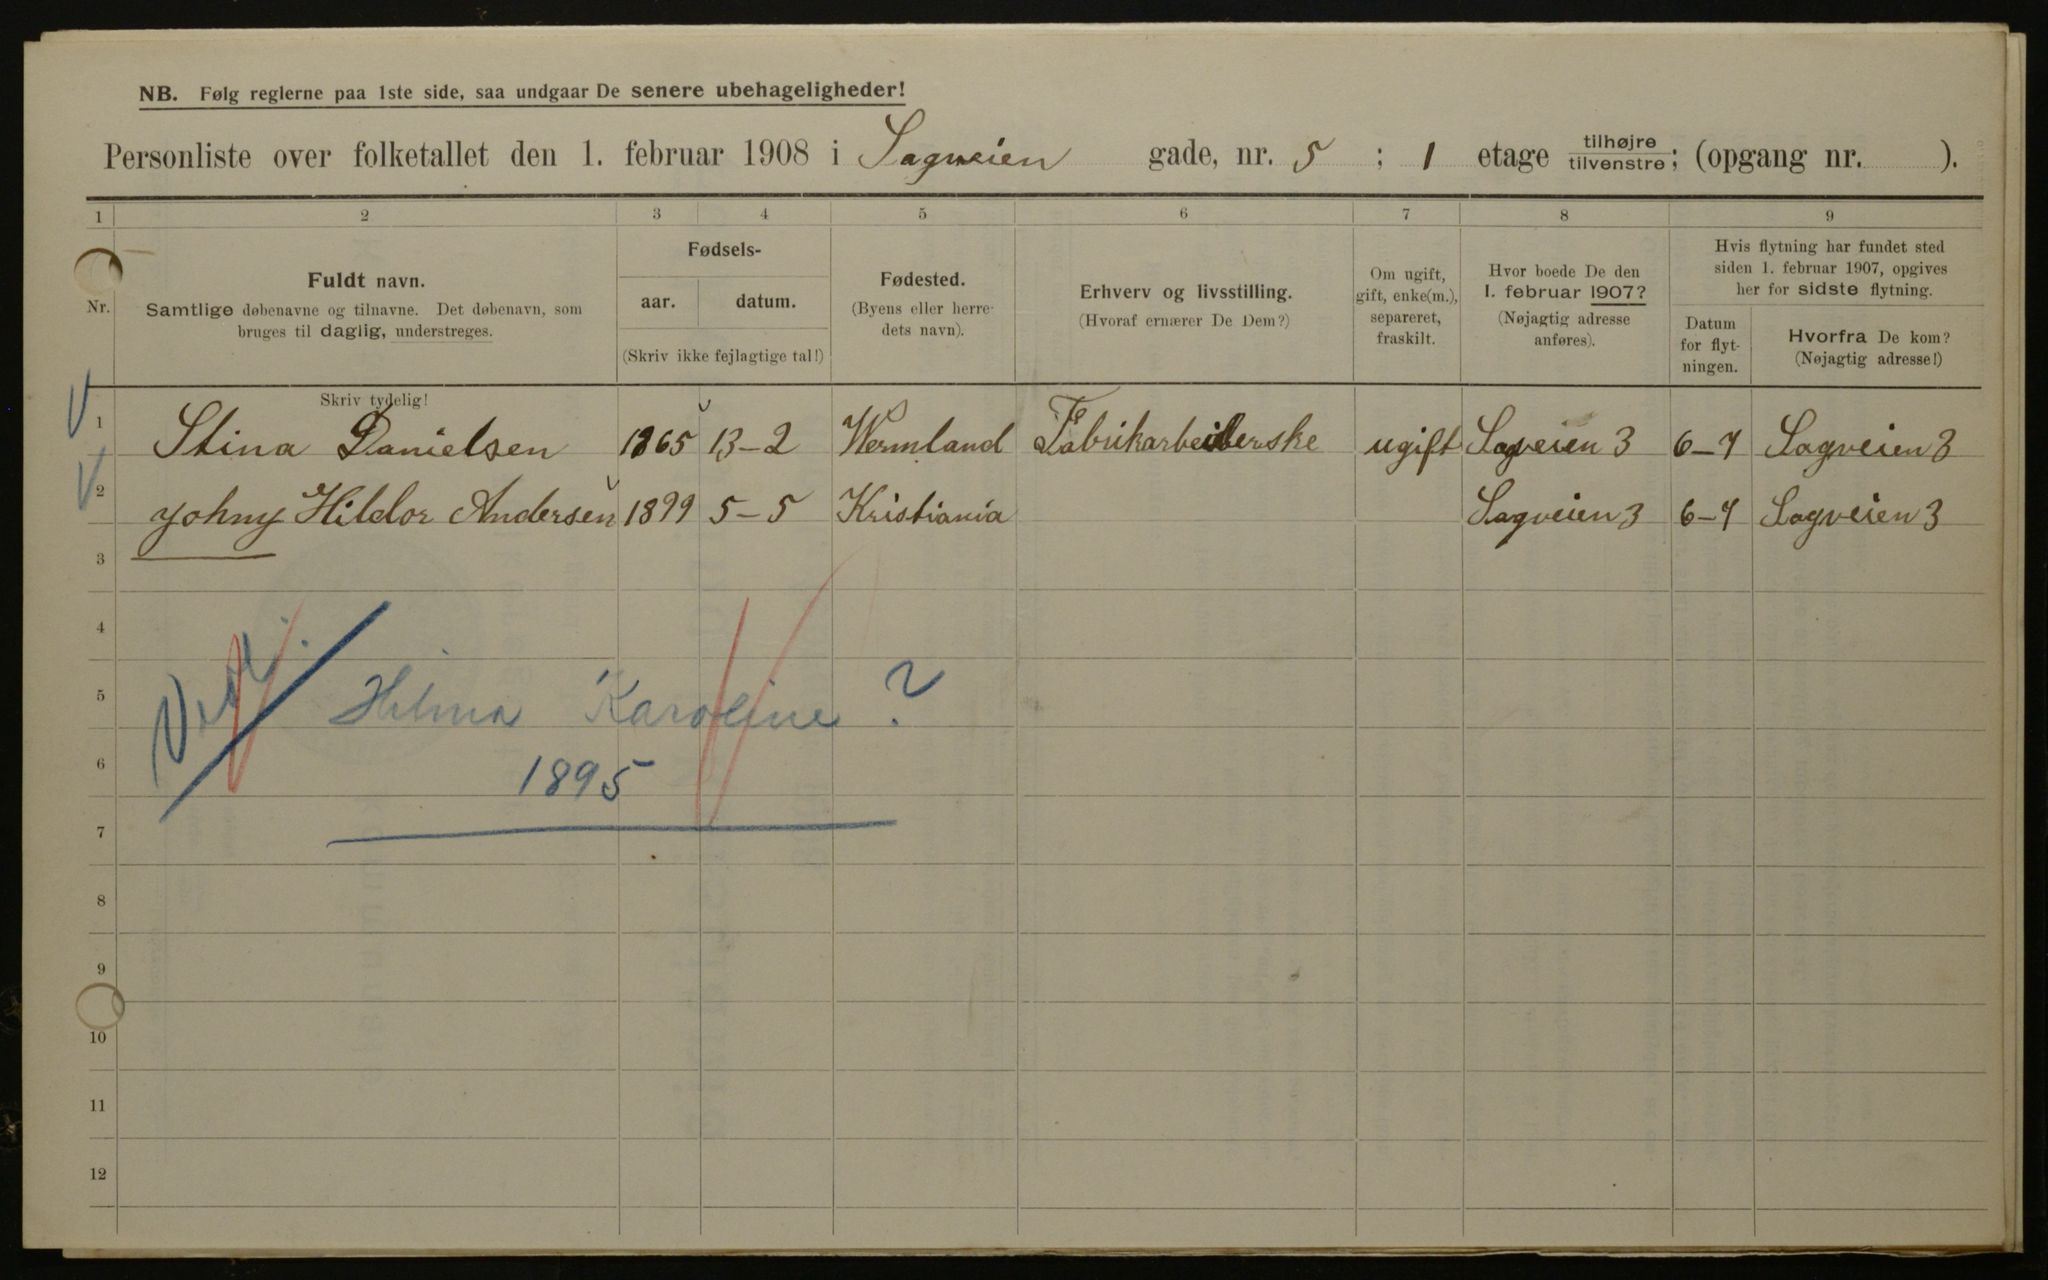 NB. Følg reglerne paa 1ste side, saa undgaar De senere ubehageligheder!
Personliste over folketallet den 1. februar 1908 i Sagveien gade, nr. 5 ; 1 etage tilhøjre tilvenstre; (opgang nr. ).
1 2 3 4 5 6 7 8 9
Nr.
Fuldt navn.
Samtlige døbenavne og tilnavne. Det døbenavn, som
bruges til daglig, understreges.
Fødsels-
aar. datum.
(Skriv ikke fejlagtige tal!)
Fødested.
(Byens eller herre-
dets navn).
Erhverv og livsstilling.
(Hvoraf ernærer De Dem?)
Om ugift,
gift, enke(m.),
separeret,
fraskilt.
Hvor boede De den
1. februar 1907?
(Nøjagtig adresse
anføres).
Hvis flytning har fundet sted
siden 1. februar 1907, opgives
her for sidste flytning.
Datum
for flyt-
ningen.
Hvorfra De kom?
(Nøjagtig adresse!)
Skriv tydelig!
1 Stina Danielsen 1865 13-2 Wermland Fabrikarbeiderske ugift Sagveien 3 6-7 Sagveien 3
2 Johny Hildor Andersen 1899 5-5 Kristiania Sagveien 3 6-7 Sagveien 3
3
4
5 Hilma Karoline ?
6 1895
7
8
9
10
11
12